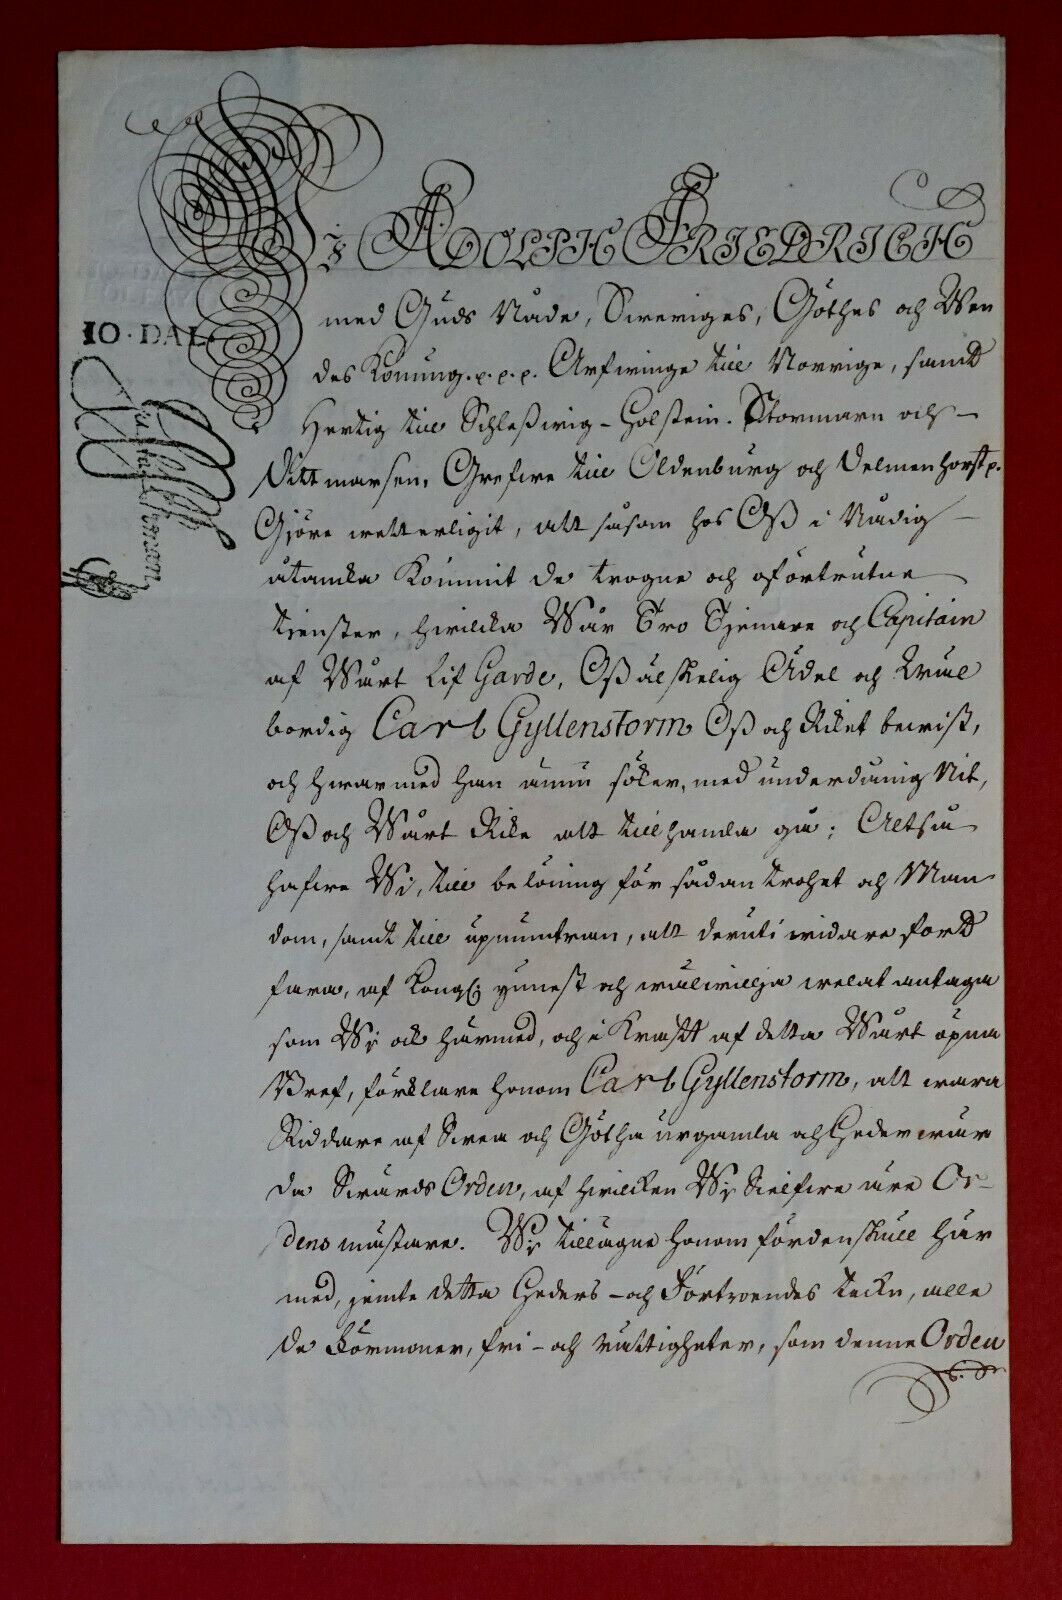 Wi ADOLPH FRIEDRICH
med Guds Nåde, Sweriges, Göthes och Wen
des Konung. p. p. p. Arfwinge till Norrige, samt
Hertig till Schleßwig-Holstein. Stormarn och
Dittmarsen, Grefwe till Oldenburg och Delmenhorst p.
Giöre wetterligit, att såsom hos Oß i Nådig
åtanka kommit de trogne och oförtrutne
tienster, hwilka Wår Tro Tjenare och Capitain
af Wårt Lif Garde, Oß älskelig Ädel och Wäl
bordig Carl Gyllenstorm Oß och Riket bewist,
och hwarmed han ännu söker, med underdånig Nit,
Oß och Wårt Rike att tillhanda gå; Altså
hafwe Wi, till belöning för sådan trohet och Man
dom, samt till upmuntran, att deruti widare fort
fara, af Kongl: ynnest och wälwillja welat antaga
som Wi ock härmed, och i Krafft af detta Wårt öpna
Bref, förklare honom Carl Gyllenstorm, att wara
Riddare af Swea och Götha urgamla och Hederwär
da Swärds Orden, af hwilken Wi Sielfwe äre Or-
dens mästare. Wi tillägne honom fördenskull här
med, jemte detta Heders- och Förtroendes tekn, alle
de Förmoner, fri- och rättigheter, som denne Orden
10. DAL.